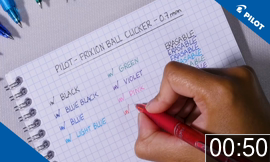 PILOT
PILOT - FRIXION BALL CLICKER - 0.7mm
BLACK
BLUE BLACK
BLUE
LIGHT BLUE
GREEN
VIOLET
PINK
ERASABLE
ERASABLE
ERASABLE
00:50